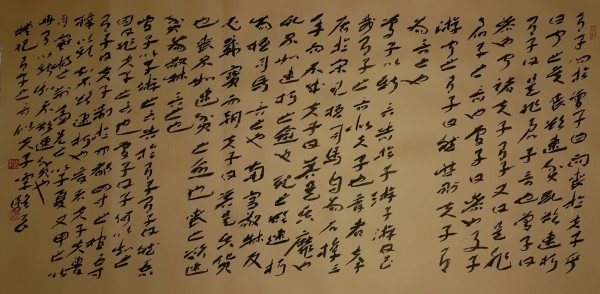 有子问于曾子曰问丧于夫子乎
曰闻之矣丧欲速贫死欲速朽
有子曰是非君子之言也曾子曰
参也闻诸夫子也有子又曰是非
君子之言也曾子曰参也与子
游闻之有子曰然然则夫子有
为言之也
曾子以斯言告于子游子游曰甚
哉有子之言似夫子也昔者夫子
居于宋见桓司马自为石椁三
年而不成夫子曰若是其靡也
死不如速朽之愈也死之欲速朽
为桓司马言之也南宫敬叔反
必载宝而朝夫子曰若是其货
也丧不如速贫之愈也丧之欲速
贫为敬叔言之也
曾子以子游之言告于有子有子曰然吾
固曰非夫子之言也曾子曰子何以知之
有子曰夫子制于中都四寸之棺五寸
椁以斯知不欲速朽也昔者夫子失鲁
司寇将之荆盖先之以子夏又申之以
冉有以斯知不欲速贫也
礼记有子之言似夫子